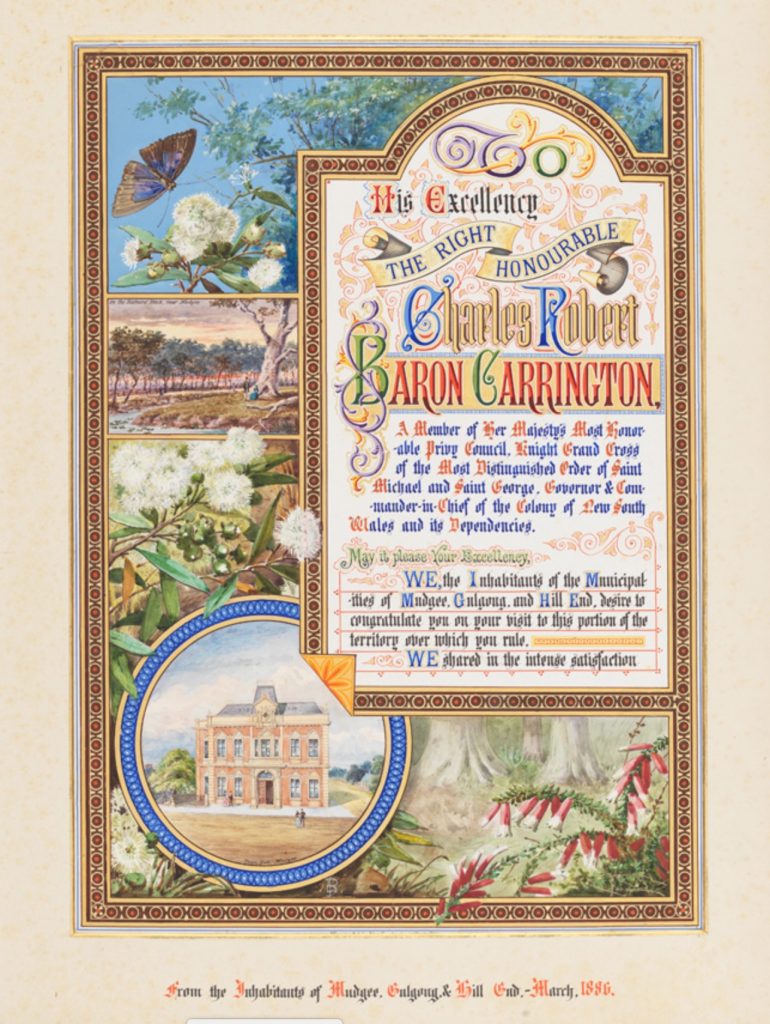 To
His Excellency
THE RIGHT
HONOURABLE
Charles Robert
BARON CARRINGTON,
A Member of Her Majesty's Most Honor-
able Privy Council, Knight Grand Cross
of the Most Distinguished Order of Saint
Michael and Saint George, Governor & Com-
mander-in-Chief of the Colony of New South
Wales and its Dependencies.
May it please Your Excellency,
WE, the Inhabitants of the Municipal-
ities of Mudgee, Gulgong, and Hill End, desire to
congratulate you on your visit to this portion of the
territory over which you rule.
WE shared in the intense satisfaction
near Mudgee
Town Hall Mudgee
From the Inhabitants of Mudgee, Gulgong, & Hill End,-March, 1886.